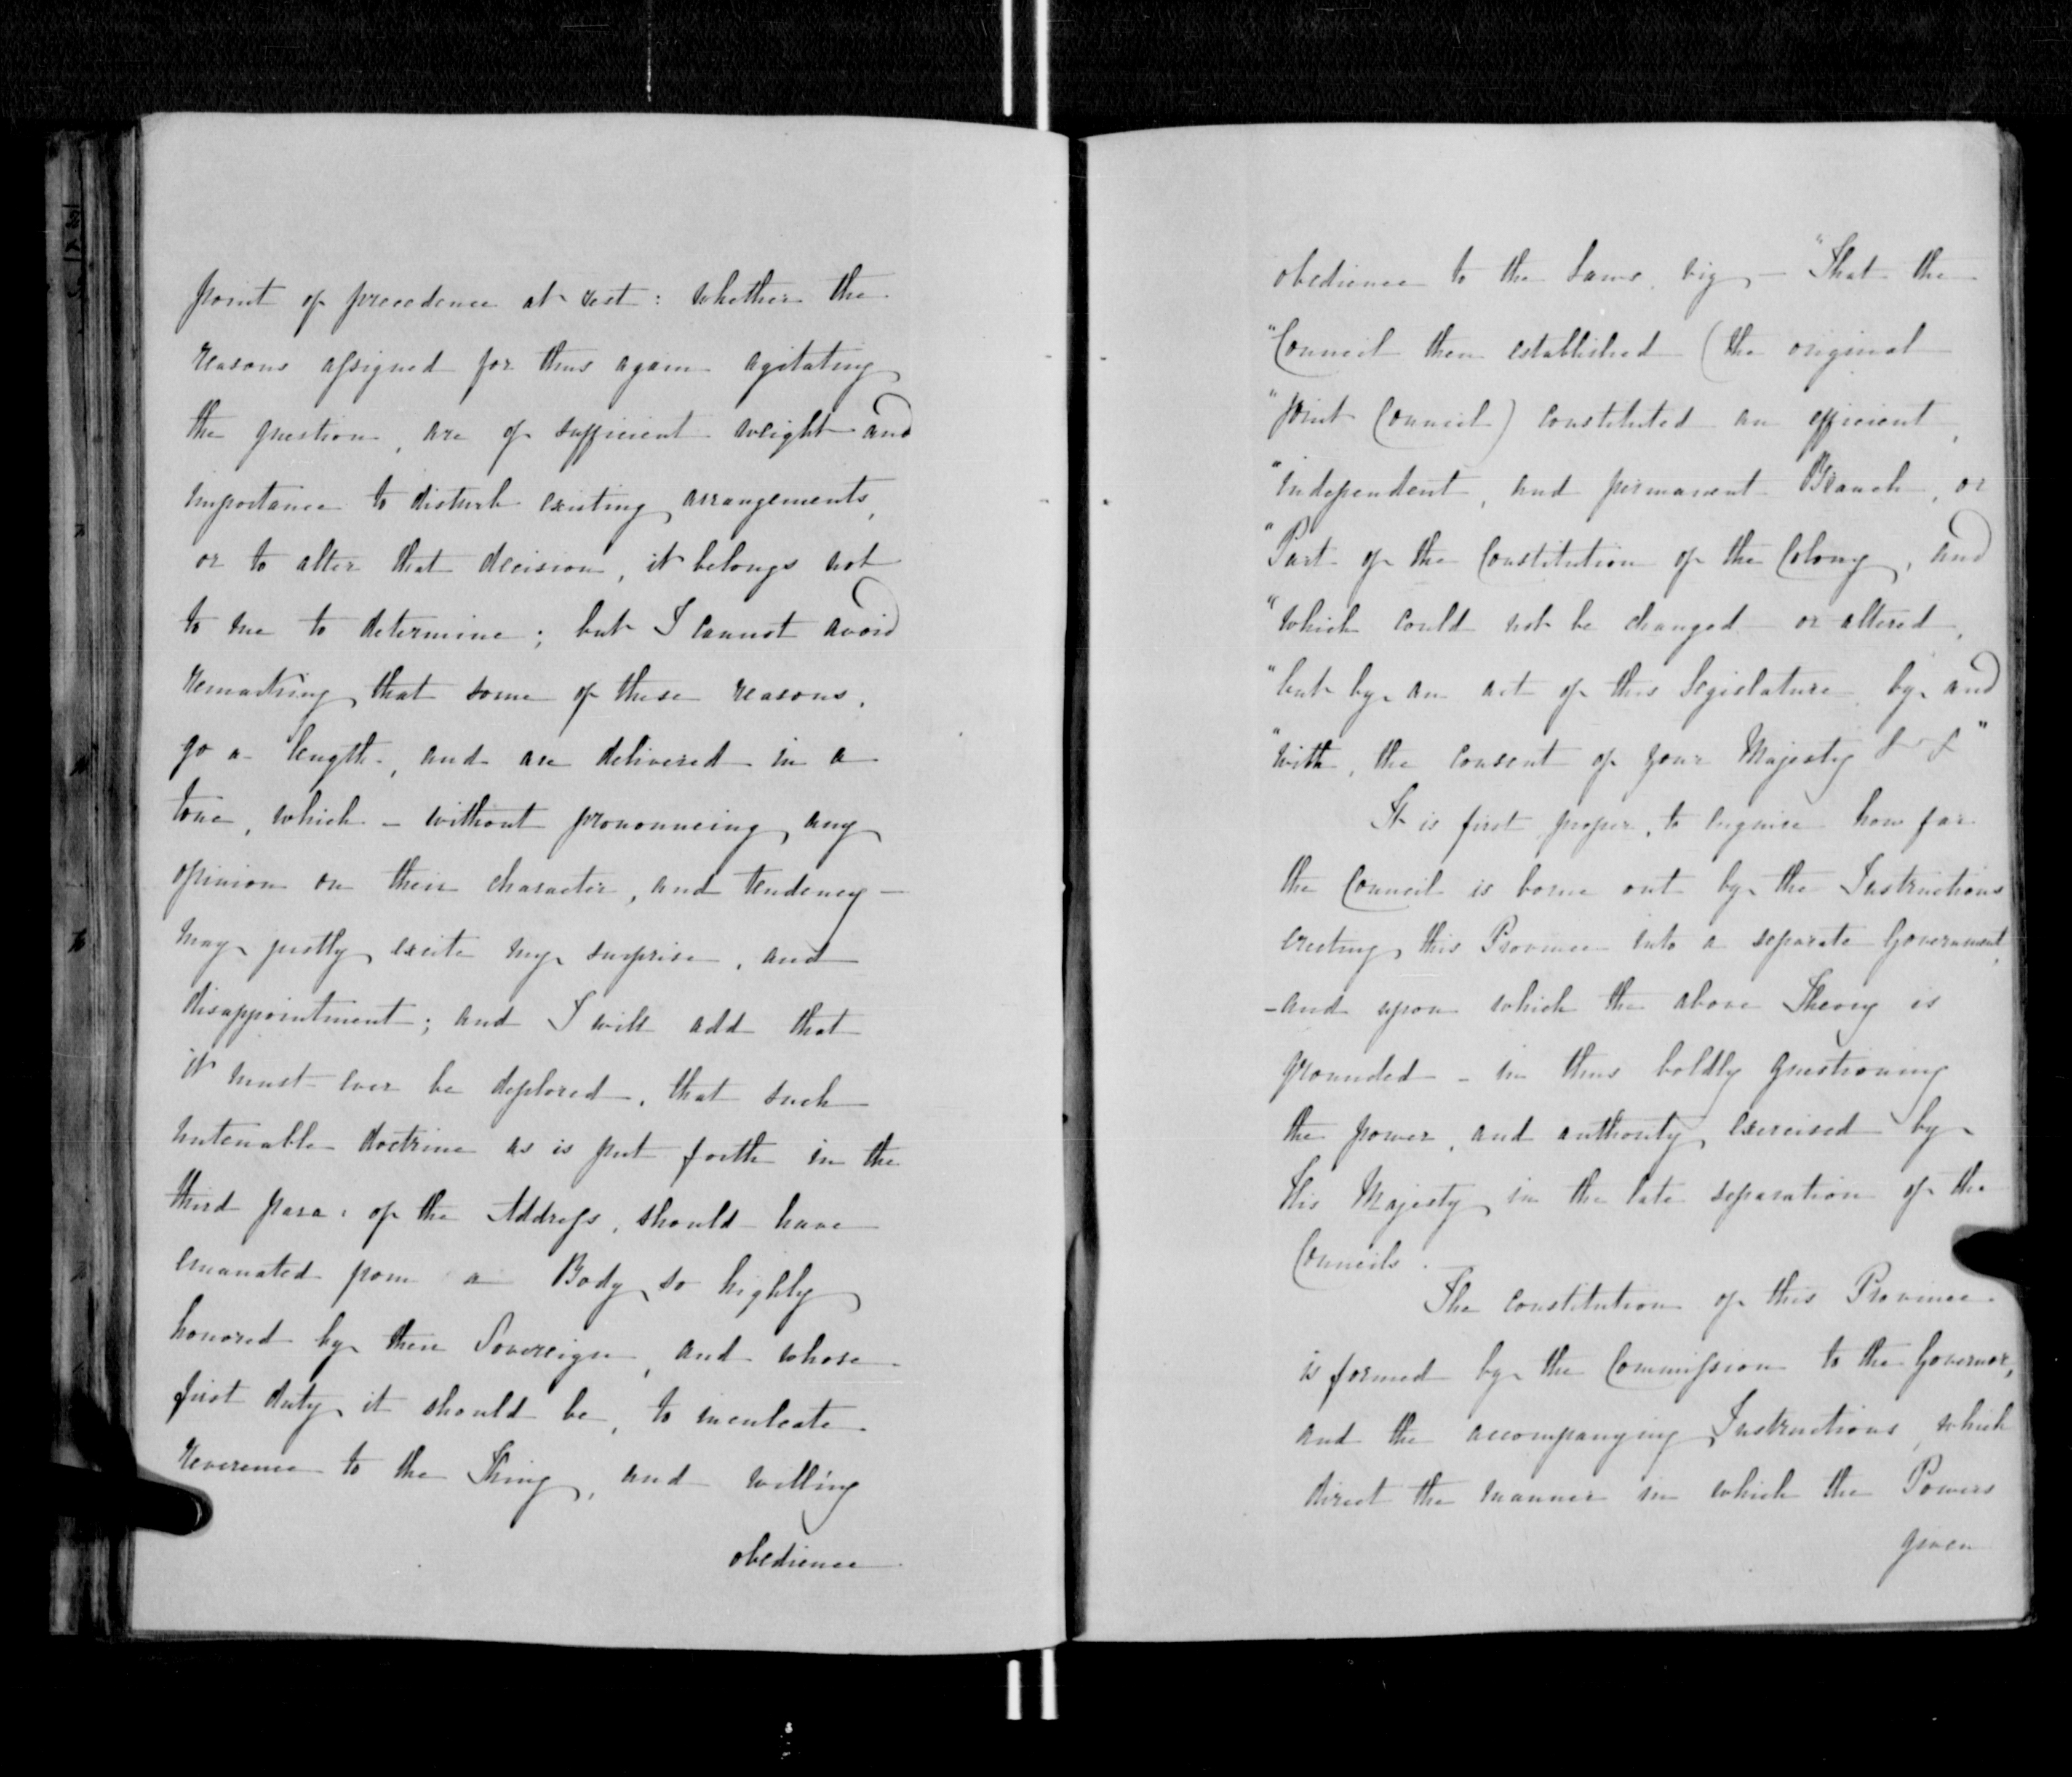 point of precedence at rest: whether the
reasons assigned for thus again agitating
the question, are of sufficient weight and
importance to disturb existing arrangements,
or to alter that decision, it belongs not
to me to determine; but I cannot avoid
remarking that some of these reasons,
go a length, and are delivered in a
tone, which - without pronouncing any
opinion on their character, and tendency -
may justly excite my surprise, and
disappointment; and I will add that
it must ever be deplored, that such
untenable doctrine as is put forth in the
third para: of the Address, should have
emanated from a Body so highly
honored by their Sovereign, and whose
first duty it should be, to inculcate
reverence to the King, and willing
obedience
obedience to the Laws, viz - "That the
"Council then established (the original
"joint Council) constituted an efficient,
"independent, and permanent Branch, or
"Part of the Constitution of the Colony, and
"which could not be changed or altered,
"but by an act of this Legislature by and
"with, the consent of your Majesty & &"
It is first proper, to enquire how far
the Council is borne out by the Instructions
erecting this Province into a separate Government,
-and upon which the above Theory is
grounded - in thus boldly questioning
the power, and authority exercised by
His Majesty in the late separation of the
Councils.
The constitution of this Province
is formed by the Commission to the Governor,
and the accompanying Instructions, which
direct the manner in which the Powers
given